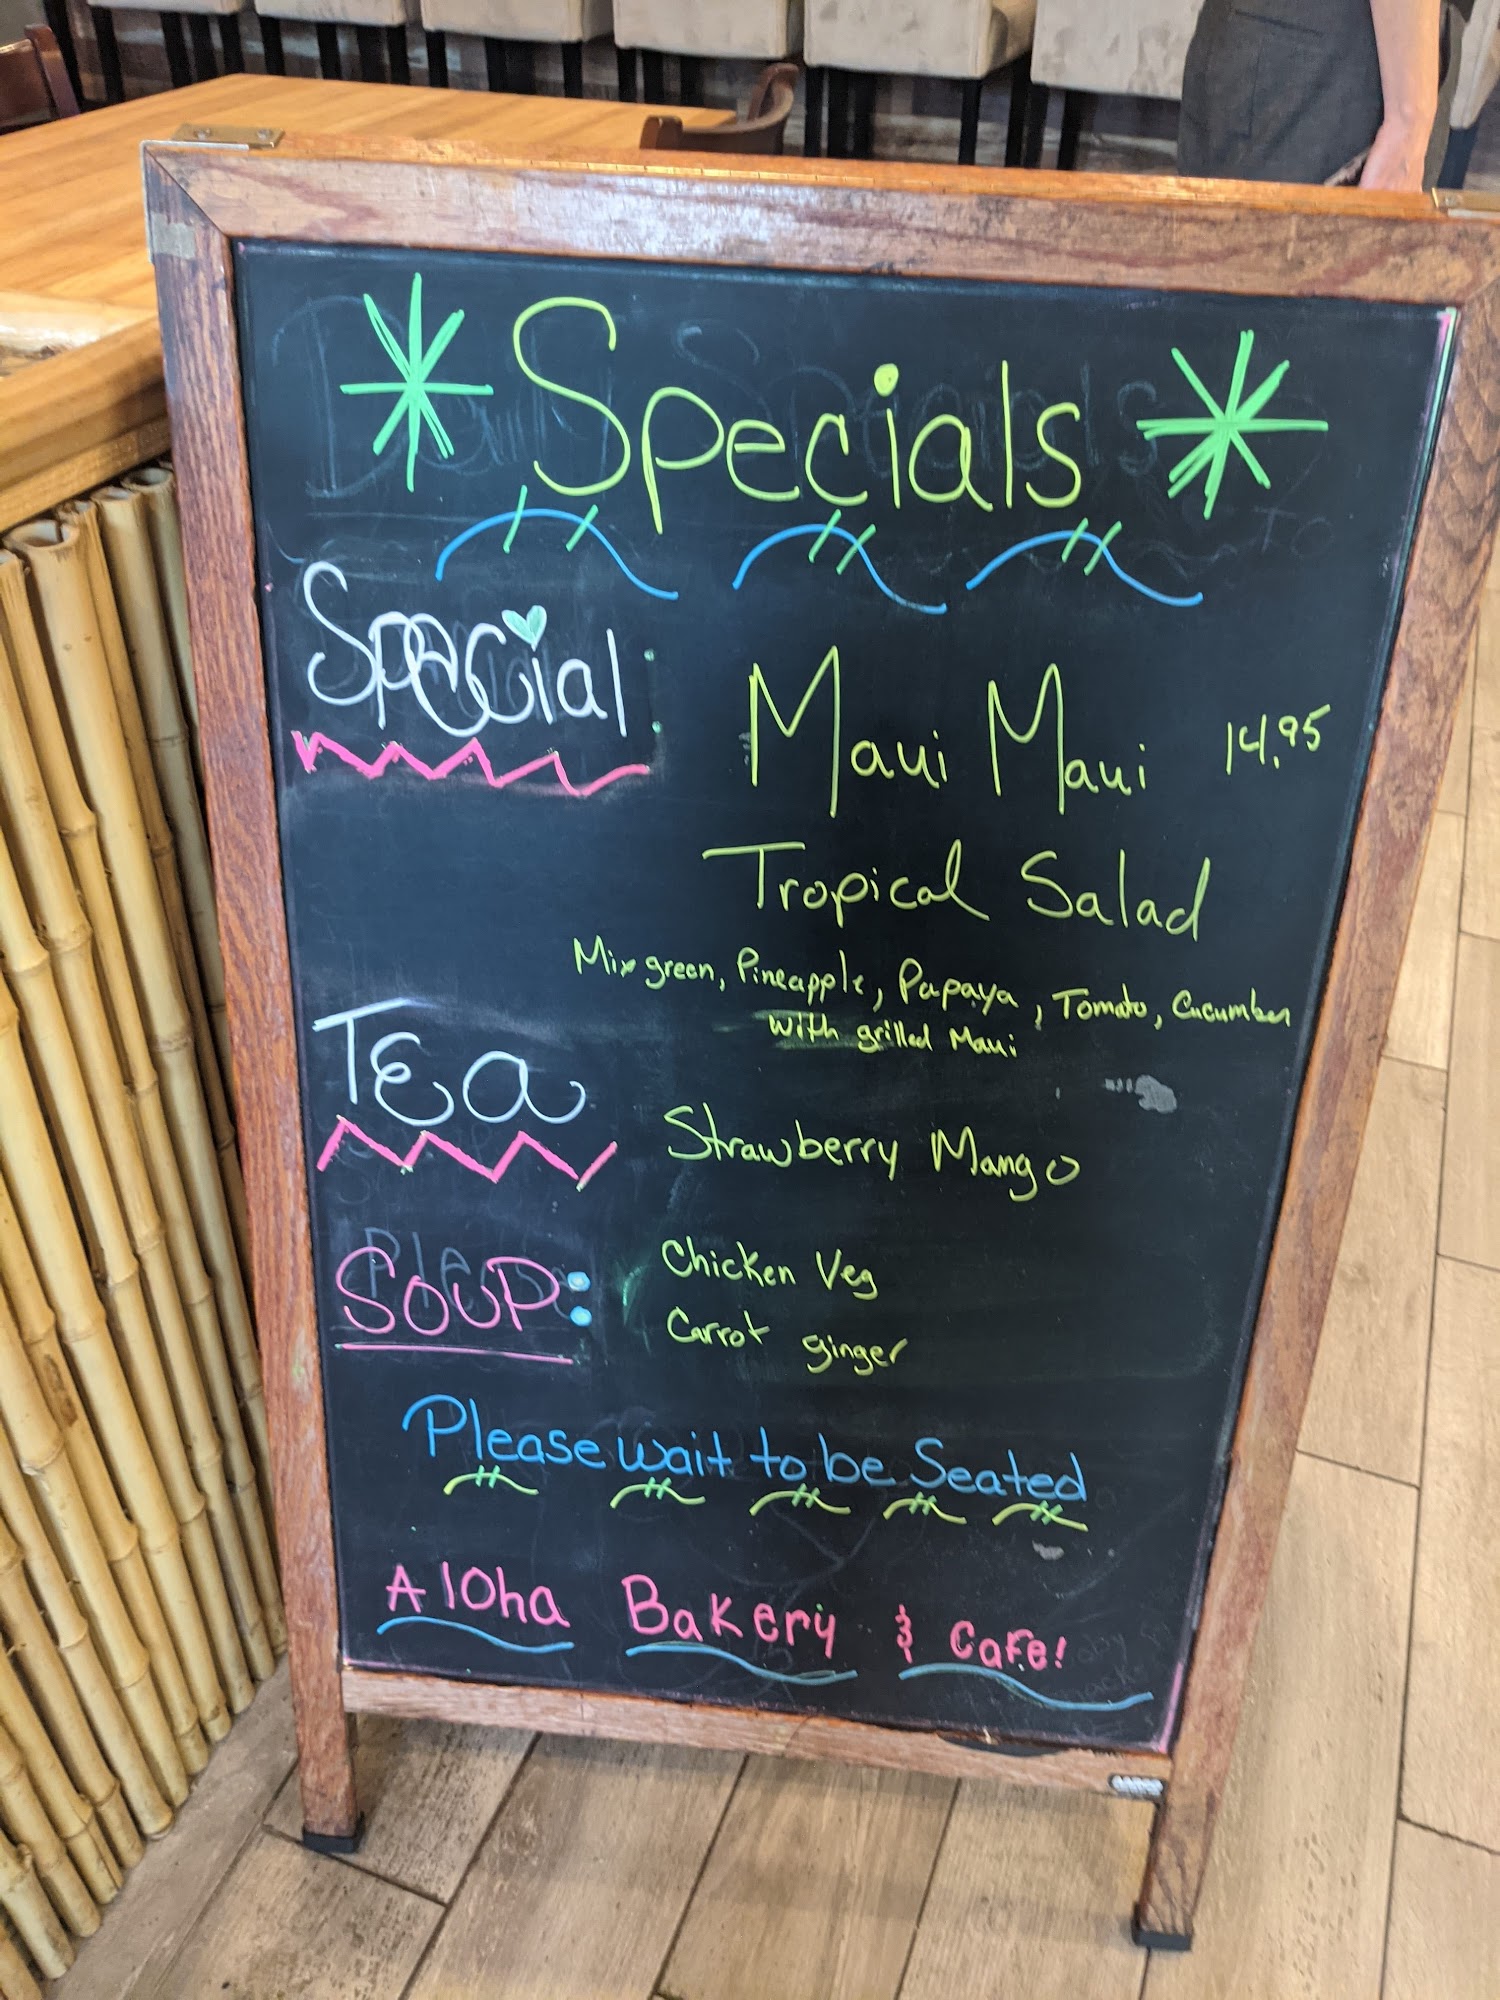 * Specials *
Special:
Maui Maui 14.95
Tropical Salad
Mix green, Pineapple, Papaya, Tomato, Cucumber
with grilled Maui
Tea
Strawberry Mango
Soup:
Chicken Veg
Carrot ginger
Please wait to be Seated
Aloha Bakery & Cafe!